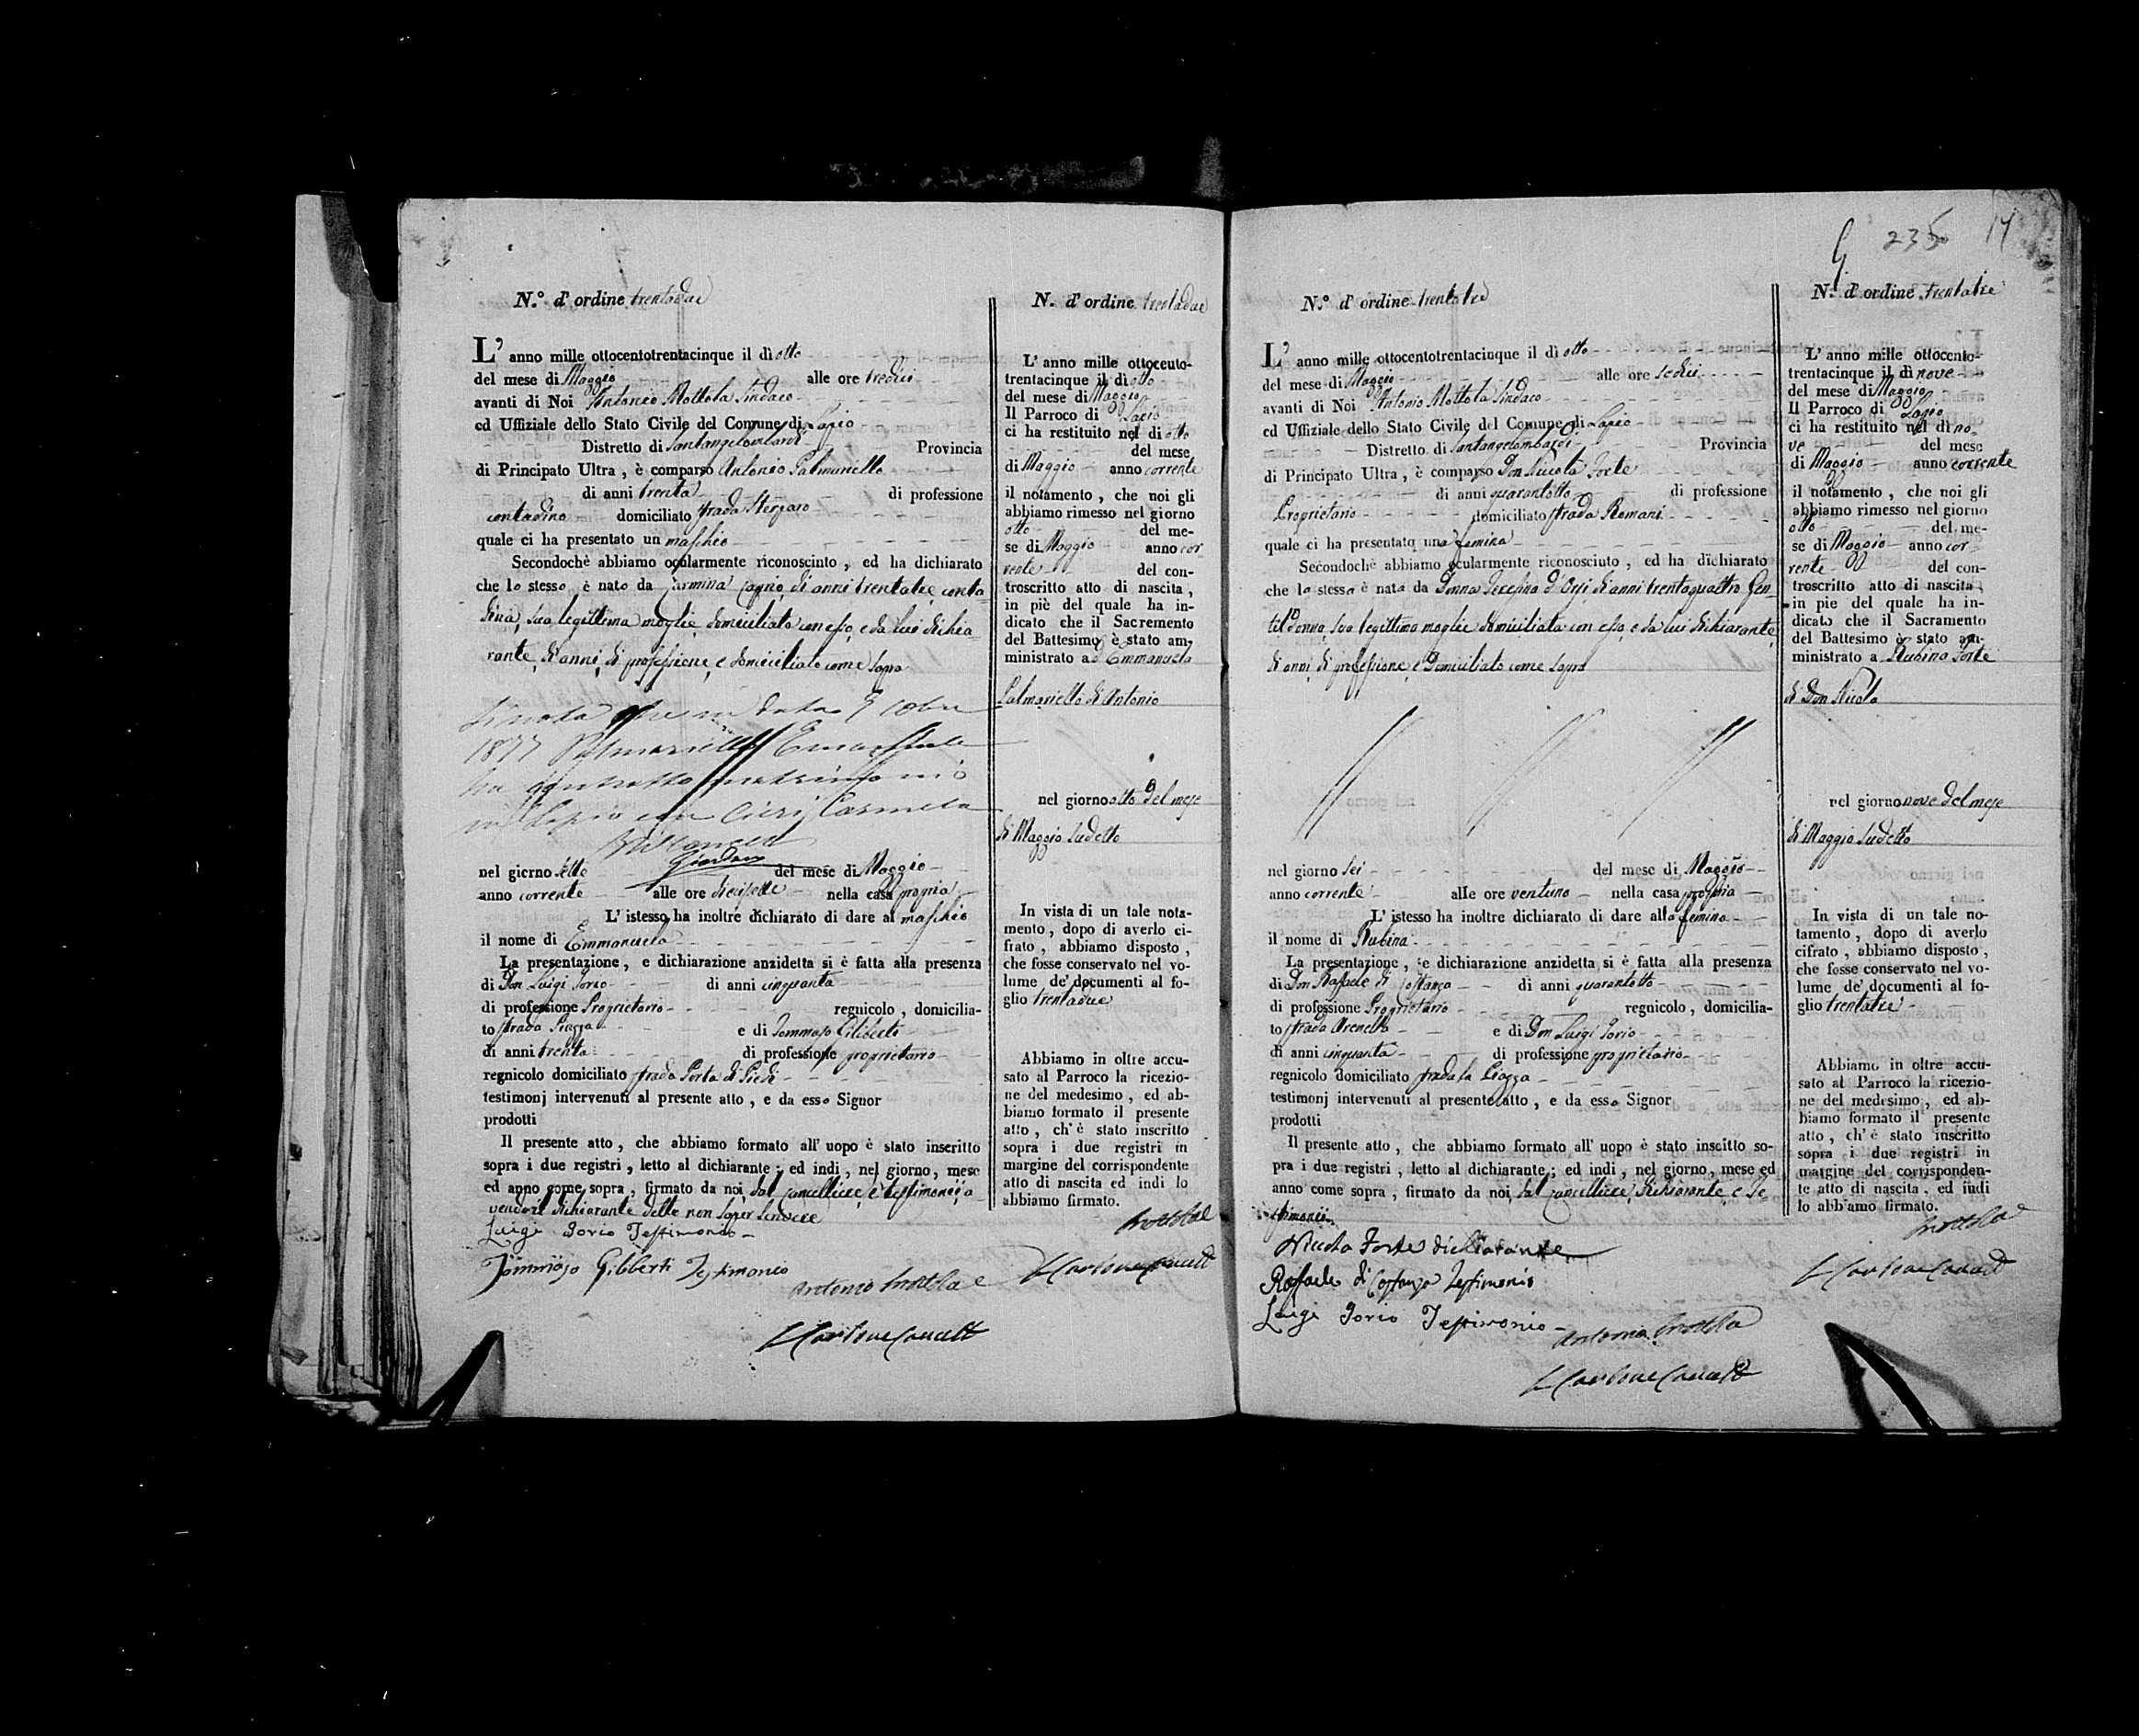 N.° d' ordine trentadue
L' anno mille ottocentotrentacinque il dì otto
del mese di Maggio alle ore tredici
avanti di Noi Antonio Mottola Sindaco
ed Uffiziale dello Stato Civile del Comune di Lapio
Distretto di Santangelombardi Provincia
di Principato Ultra , è comparso Antonio Palmariello
di anni trenta di professione
contadino domiciliato strada
quale ci ha presentato un maschio
Secondochè abbiamo ocularmente riconosciuto , ed ha dichiarato
che lo stesso è nato da Carmina di anni trentatre conta
dina, sua legittima moglie domiciliata con esso, e da lui dichia
rante, di anni, di professione, e domiciliato come sopra
Si nota che in data 9 8bre
1877 Palmariello Emanuele
ha contratto matrimonio
in Lapio con Carmela
nel giorno sette del mese di Maggio
anno corrente alle ore diecisette nella casa propria
L' istesso ha inoltre dichiarato di dare al maschio
il nome di Emmanuele
La presentazione , e dichiarazione anzidetta si è fatta alla presenza
di Don Luigi Iorio di anni cinquanta
di professione Proprietario regnicolo , domicilia-
to strada Piazza e di Tommaso Giliberti
di anni trenta di professione proprietario
regnicolo domiciliato strada Porta di Piedi
testimonj intervenuti al presente atto , e da esso Signor
prodotti
Il presente atto , che abbiamo formato all' uopo è stato inscritto
sopra i due registri , letto al dichiarante ; ed indi , nel giorno , mese
ed anno come sopra , firmato da noi, dal cancelliere, e testimonii, a
vendo il dichiarante detto non saper scrivere
Luigi Iorio Testimonio
Tommaso Giliberti Testimonio
Antonio Mottola
N. d' ordine trentadue
L' anno mille ottocento-
trentacinque il dì otto
del mese di Maggio
Il Parroco di Lapio
ci ha restituito nel dì otto
del mese
di Maggio anno corrente
il notamento , che noi gli
abbiamo rimesso nel giorno
otto del me-
se di Maggio anno cor
rente del con-
troscritto atto di nascita ,
in piè del quale ha in-
dicato che il Sacremento
del Battesimo è stato am-
ministrato a Emmanuele
Palmariello di Antonio
nel giorno otto del mese
di Maggio sudetto
In vista di un tale nota-
mento , dopo di averlo ci-
frato , abbiamo disposto ,
che fosse conservato nel vo-
lume de' documenti al fo-
glio trentadue
Abbiamo in oltre accu-
sato al Parroco la ricezio-
ne del medesimo , ed ab-
biamo formato il presente
atto , ch' è stato inscritto
sopra i due registri in
margine del corrispondente
atto di nascita ed indi lo
abbiamo firmato.
Mottola
235 17
N.° d' ordine trentatre
L' anno mille ottocentotrentacinque il dì otto
del mese di Maggio alle ore sedici
avanti di Noi Antonio Mottola Sindaco
ed Uffiziale dello Stato Civile del Comune di Lapio
Distretto di Santangelombardi Provincia
di Principato Ultra , è comparso Don Nicola Forte
di anni quarantotto di professione
Proprietario domiciliato strada Romani
quale ci ha presentato una femina
Secondochè abbiamo ocularmente riconosciuto , ed ha dichiarato
che la stessa è nata da Donna Teresina d'Orsi di anni trentaquattro Gen
til Donna, sua legittima moglie domiciliata con esso, e da lui dichiarante,
di anni, di professione, e domiciliato come sopra
nel giorno sei del mese di Maggio
anno corrente alle ore ventuno nella casa propria
L' istesso ha inoltre dichiarato di dare alla femina
il nome di Rubina
La presentazione , e dichiarazione anzidetta si è fatta alla presenza
di Don Raffaele di Costanzo di anni quarantotto
di professione Proprietario regnicolo , domicilia-
to strada Arenella e di Don Luigi Iorio
di anni cinquanta di professione proprietario
regnicolo domiciliato strada la Piazza
testimonj intervenuti al presente atto , e da esso Signor
prodotti
Il presente atto , che abbiamo formato all' uopo è stato inscitto so-
pra i due registri , letto al dichiarante ; ed indi , nel giorno , mese ed
anno come sopra , firmato da noi, dal cancelliere, dichiarante, e Te
stimonii
Nicola Forte dichiarante
Raffaele di Costanzo Testimonio
Luigi Iorio Testimonio
Antonio Mottola
N. d' ordine trentatre
L' anno mille ottocento-
trentacinque il dì nove
del mese di Maggio
Il Parroco di Lapio
ci ha restituito nel dì no
ve del mese
di Maggio anno corrente
il notamento , che noi gli
abbiamo rimesso nel giorno
otto del me-
se di Maggio anno cor
rente del con-
troscritto atto di nascita ,
in pie del quale ha in-
dicato che il Sacramento
del Battesimo è stato am-
ministrato a Rubina Forte
di Don Nicola
nel giorno nove del mese
di Maggio sudetto
In vista di un tale no-
tamento , dopo di averlo
cifrato , abbiamo disposto ,
che fosse conservato nel vo-
lume de' documenti al fo-
glio trentatre
Abbiamo in oltre accu-
sato al Parroco la ricezio-
ne del medesimo , ed ab-
biamo formato il presente
atto , ch' è stato inscritto
sopra i due registri in
margine del corrisponden-
te atto di nascita , ed indi
lo abbiamo firmato.
Mottola